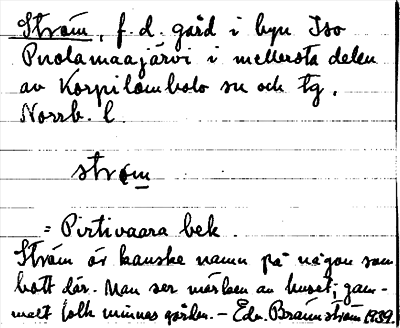 Ström, f.d. gård i byn Iso
Puolamaajärvi i mellersta delen
av Korpilombolo sn och tg,
Norrb. l.
strøm
= Pirtivaara bek.
Ström är kanske namn på någon som
bott där. Man ser märken av huset; gam-
malt folk minnes gården. – Edv. Brännström 1939.